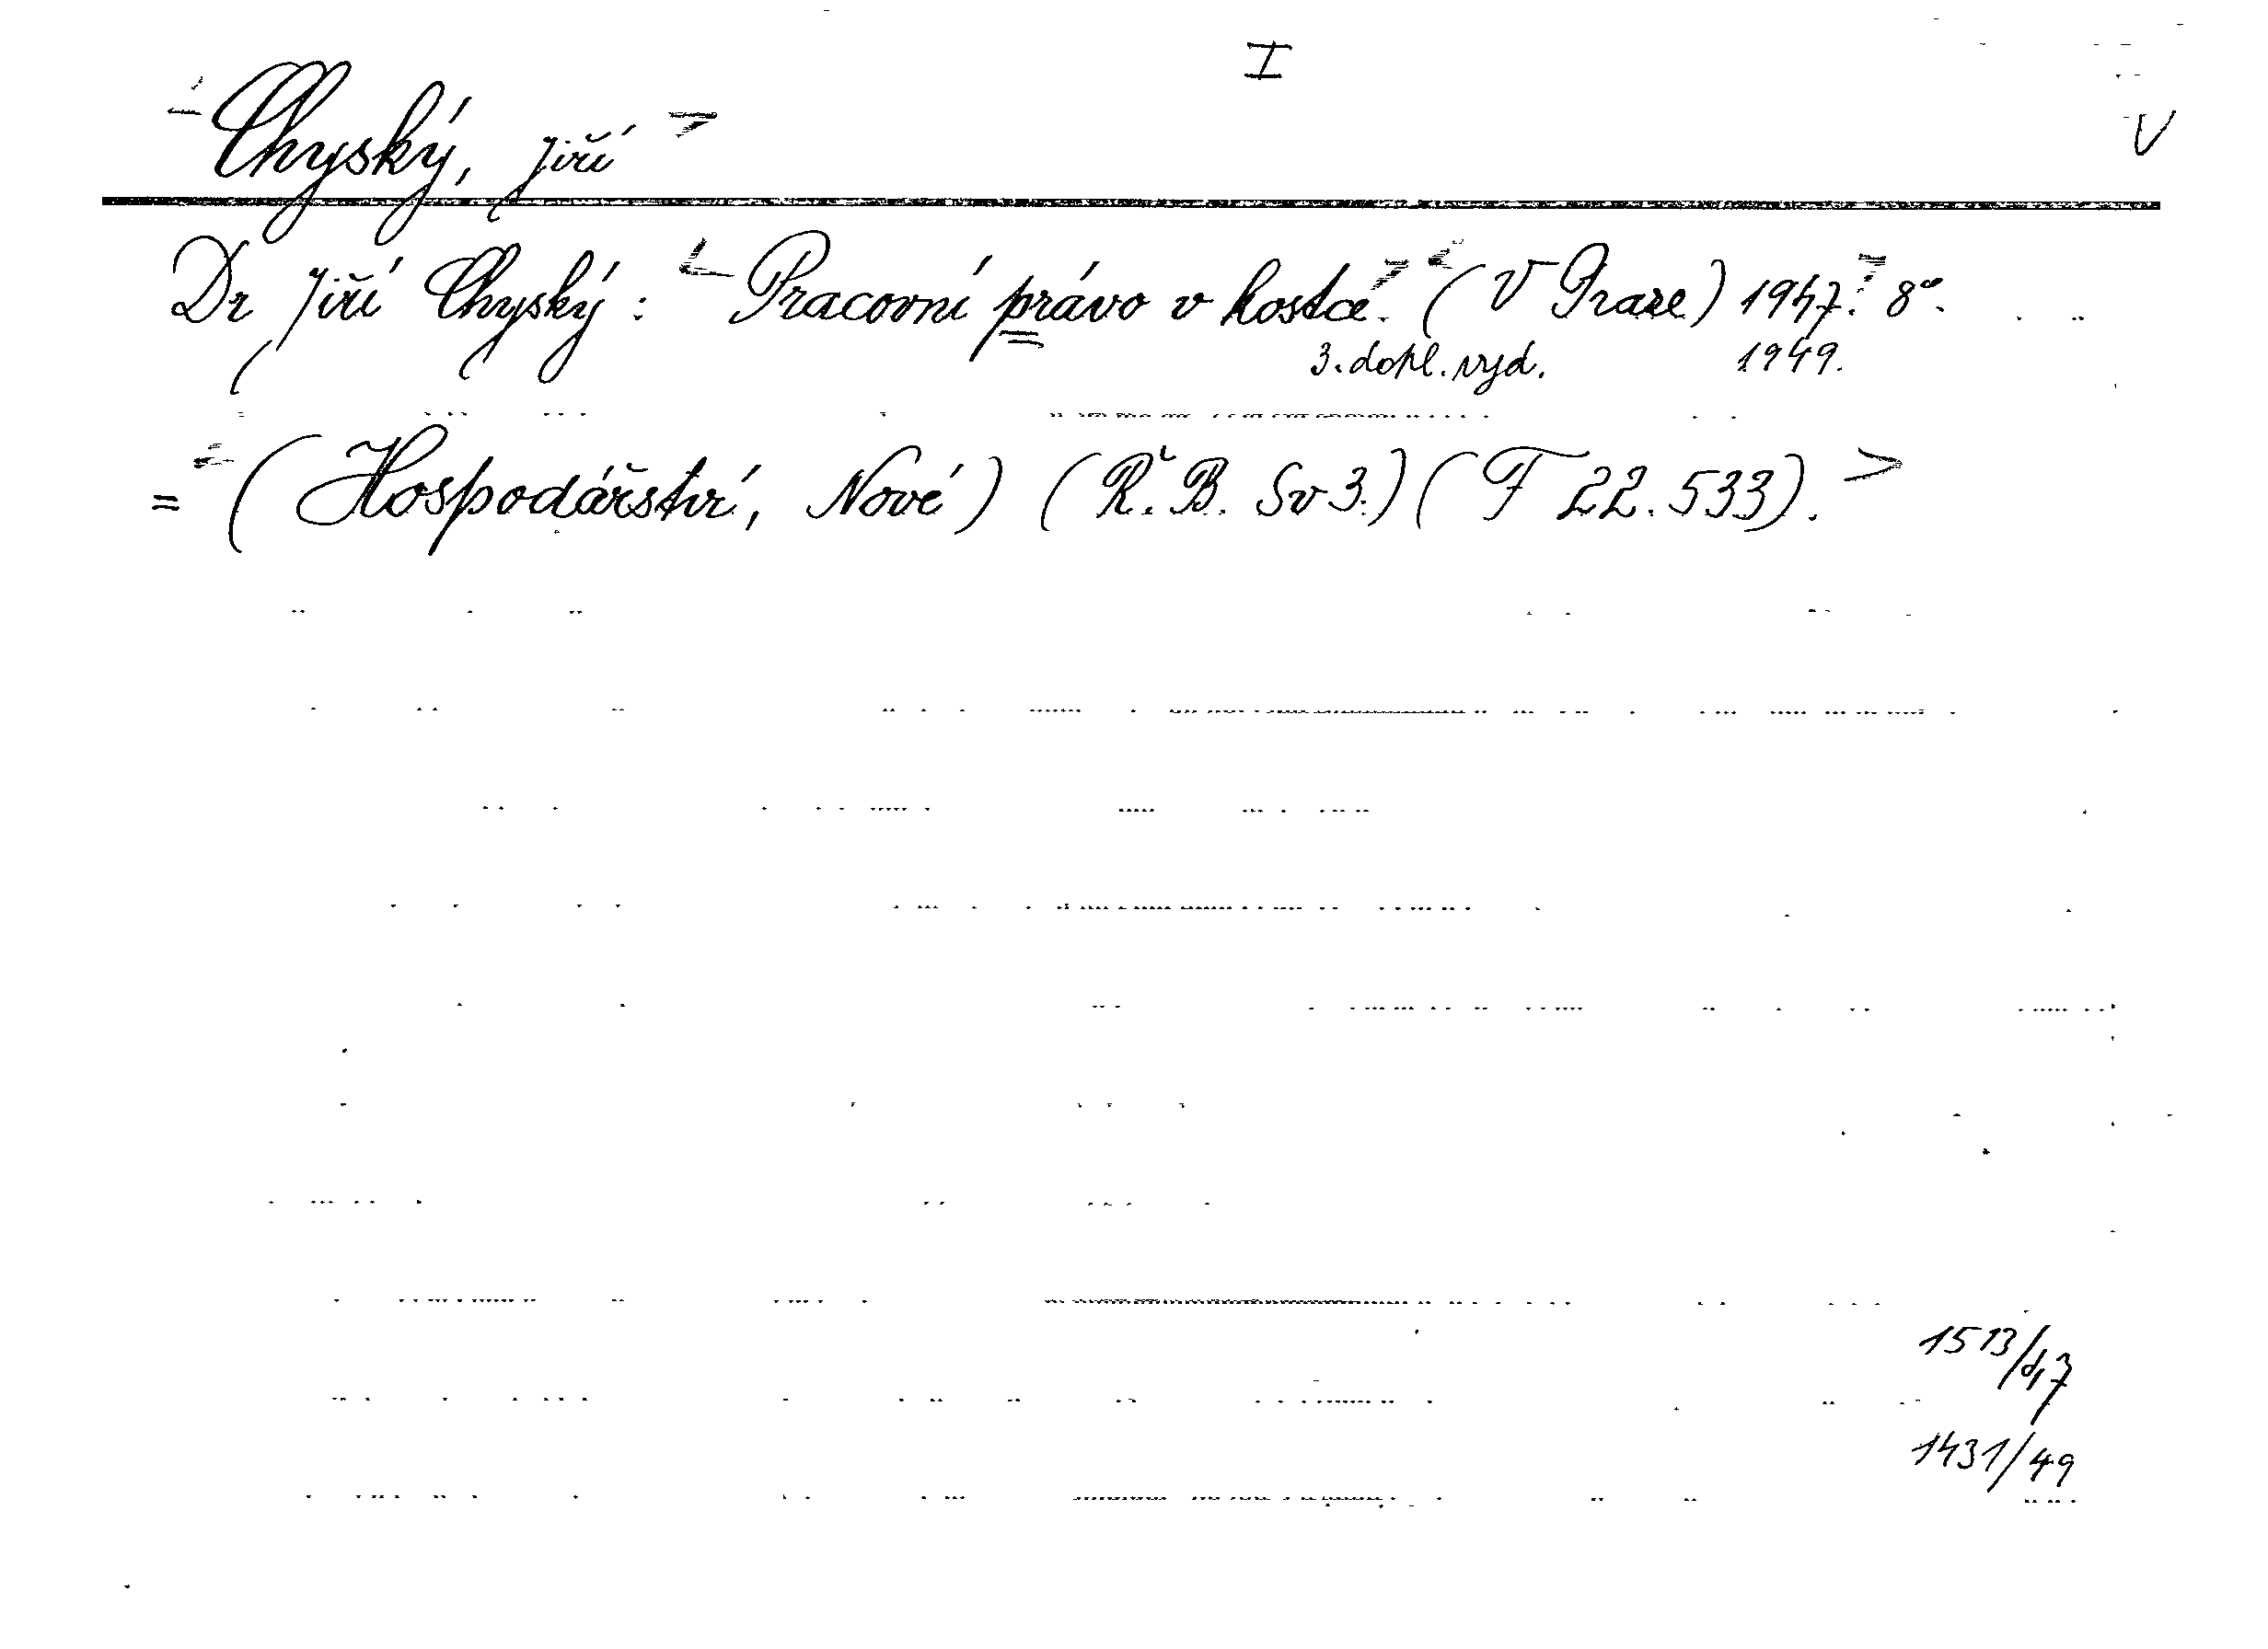 I
Chyský, Jiří
V
Dr Jiří Chyský: Pracovní právo v kostce. (V Praze) 1947. 8°.
3. dopl. vyd. 1949.
= (Hospodářství, Nové) (Ř. B. Sv 3.) (F 22.533).
1513/47
1431/49